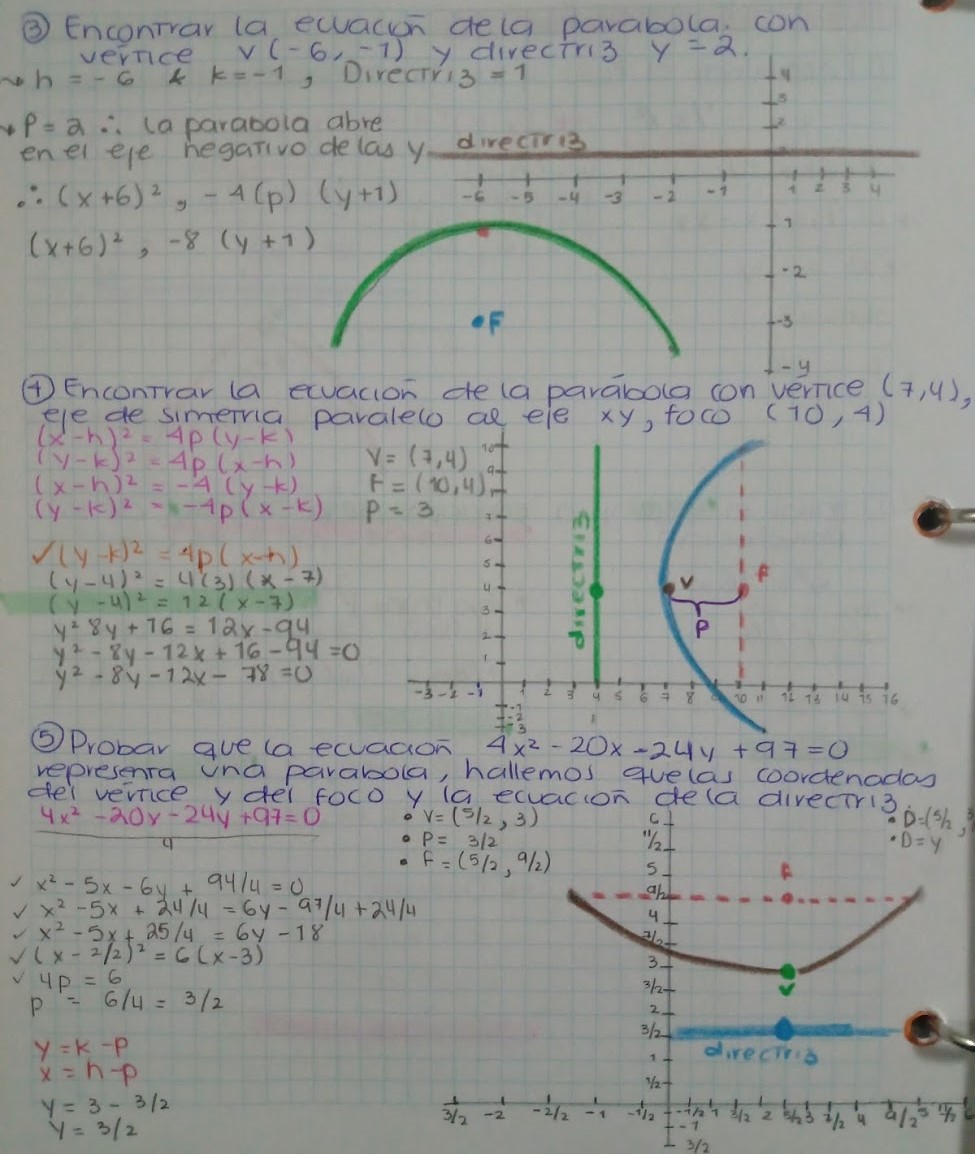 ③ Encontrar la ecuación de la parabola con
vertice V(-6, -1) y directriz y = 2.
h = -6 & k = -1, Directriz = 1
P = 2 ∴ la parabola abre
en el eje negativo de las y
directriz
∴ (x+6)², -4(p) (y+1)
(x+6)², -8 (y+1)
4
3
2
-6 -5 -4 -3 -2 -1 1 2 3 4
1
-2
-3
-4
F
④ Encontrar la ecuación de la parábola con vertice (7,4),
eje de simetria paralelo al eje xy, foco (10, 4)
(x-h)² = 4p (y-k)
(y-k)² = 4p (x-h)
(x-h)² = -4 (y-k)
(y-k)² = -4p (x-k)
V = (7,4)
F = (10,4)
P = 3
✓(y-k)² = 4p(x-h)
(y-4)² = 4(3) (x-7)
(y-4)² = 12 (x-7)
y² 8y + 16 = 12x - 94
y² - 8y - 12x + 16 - 94 = 0
y² - 8y - 12x - 78 = 0
directriz
V
F
P
10
9
7
6
5
4
3
2
1
-3 -2 -1 1 2 3 4 5 6 7 8 9 10 11 12 13 14 15 16
-1
-2
-3
⑤ Probar que la ecuación 4x² - 20x - 24y + 97 = 0
representa una parabola, hallemos que las coordenadas
del vertice y del foco y la ecuación de la directriz.
4x² - 20x - 24y + 97 = 0
4
• V = (5/2, 3)
• P = 3/2
• F = (5/2, 9/2)
• D = (5/2,
• D = y
✓ x² - 5x - 6y + 94/4 = 0
✓ x² - 5x + 24/4 = 6y - 97/4 + 24/4
✓ x² - 5x + 25/4 = 6y - 18
✓ (x - 2/2)² = 6(x-3)
✓ 4p = 6
p = 6/4 = 3/2
y = k - p
x = h - p
y = 3 - 3/2
y = 3/2
6
11/2
5
9/2
4
7/2
3
3/2
2
3/2
1
1/2
F
V
directriz
3/2 -2 -2/2 -1 -1/2 -1/2 1 3/2 2 5/2 3 7/2 4 9/2 5 11/2 6
-1
3/2